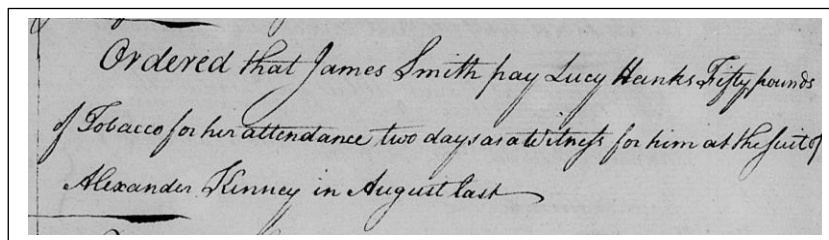 Ordered that James Smith pay Lucy Hanks Fifty pounds
of Tobacco for her attendance two days as a Witness for him at the suit of
Alexander Kinney in August last